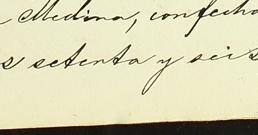 Medina, confecha
s setenta y seis